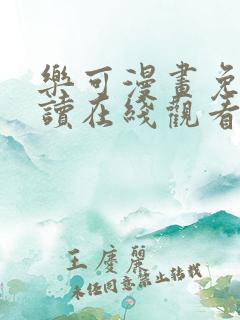 樂可漫畫免
讀在綫觀看
王慶麗
未经同意禁止转载